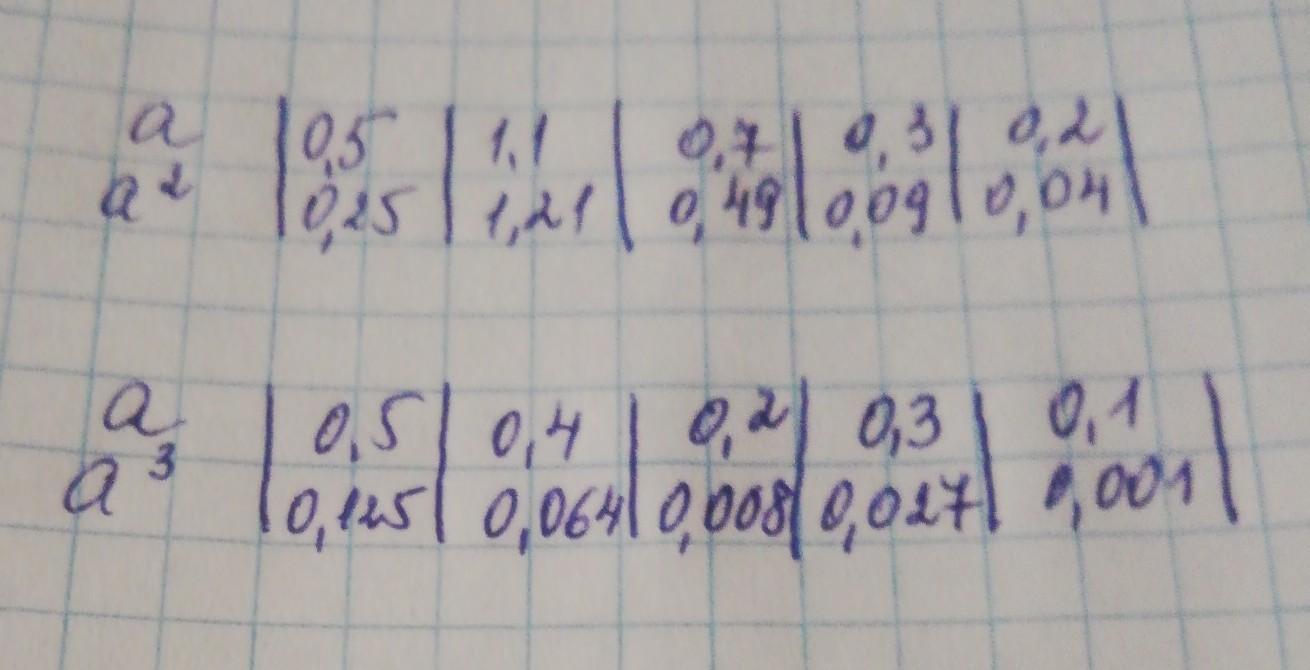 a | 0,5 | 1,1 | 0,7 | 0,3 | 0,2 |
a² | 0,25 | 1,21 | 0,49 | 0,09 | 0,04 |
a | 0,5 | 0,4 | 0,2 | 0,3 | 0,1 |
a³ | 0,125 | 0,064 | 0,008 | 0,027 | 0,001 |